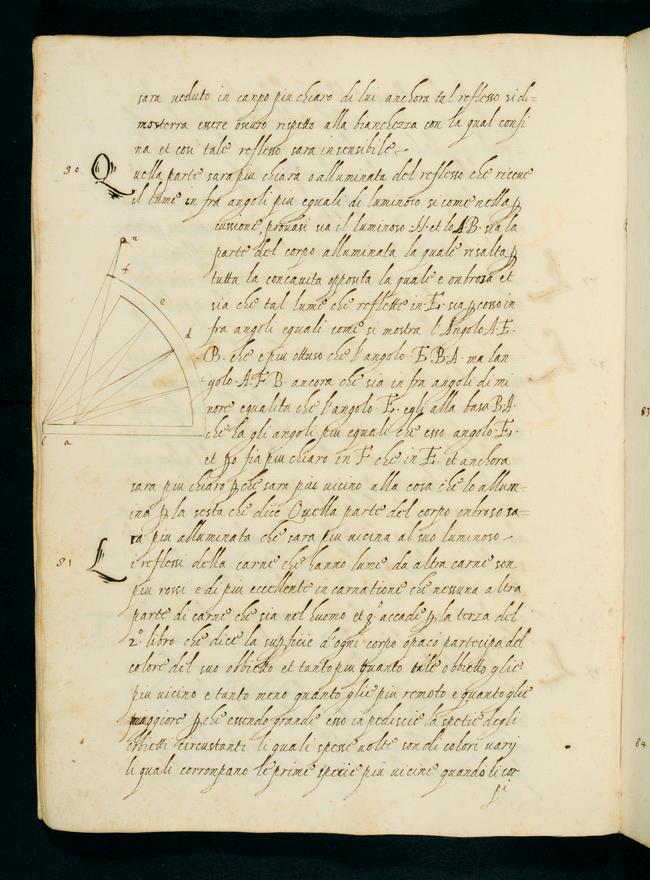 sara veduto in canpo piu chiaro di lui anchora tal reflesso si di=
mosterra essere oscuro rispetto alla bianchezza con la qual confi
na et cosi tale reflesso sara insensibile
80 Quella parte sara piu chiara o alluminata del reflesso che riceve
il lume in fra angoli piu equali di luminoso si come nella p
cussione, provasi sia il luminoso .H. et lo .A.B. sia la
parte del corpo alluminata la quale risalta p
tutta la concavita opposita la quale e onbrosa et
sia che tal lume che reflette in .E. sia pcosso in
fra angoli equali come si mostra l'Angolo .A.E.
.B. che e piu ottuso che l'angolo .E.B.A. ma lan
golo .A.F.B. ancora che sia in fra angoli di mi
nore equalita che l'angolo .E. egli alla basa B.A.
che ha gli angoli piu equali che esso angolo .E.
et po fia piu chiaro in .F. che in .E. et anchora
n
f
e
d
a
sara piu chiaro pche sara piu vicino alla cosa che lo allum=
ina p la sesta che dice Quella parte del corpo onbroso sa=
ra piu alluminata che sara piu vicina al suo luminoso
81 Li reflessi della carne che hanno lume da altra carne son
piu rossi e di piu eccellente incarnatione che nessuna altra
parte di carne che sia nel huomo et qo accade p la terza del
2o. libro che dice la supficie d'ogni corpo opaco partecipa del
colore del suo obbietto et tanto piu quanto tale obbietto glie
piu vicino e tanto meno quanto glie piu remoto e quanto glie
maggiore pche essendo grande esso inpediscie la spetie degli
obbietti circustanti li quali spesse volte son di colori varij
li quali corronpano le prime spetie piu vicine quando li cor
pi
83
84